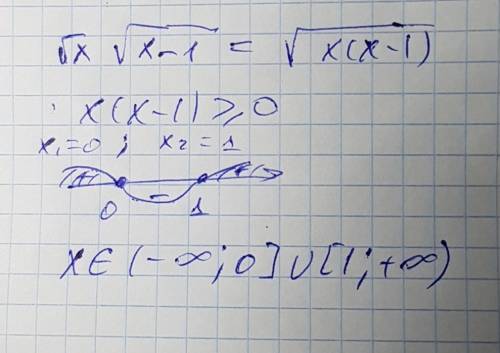 √x √x-1 = √x(x-1)
x(x-1) ≥ 0
x₁=0; x₂=1
+ - +
0 1
x∈(-∞;0]∪[1;+∞)